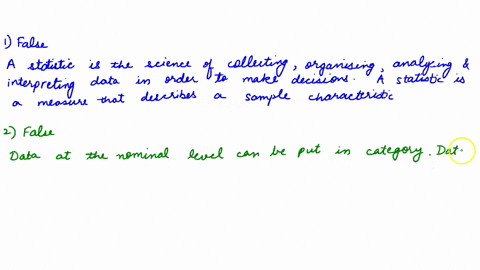 1) False
A statistic is the science of collecting, organising, analyzing &
interpreting data in order to make decisions. A statistic is
a measure that describes a sample characteristic
2) False
Data at the nominal level can be put in category. Dat